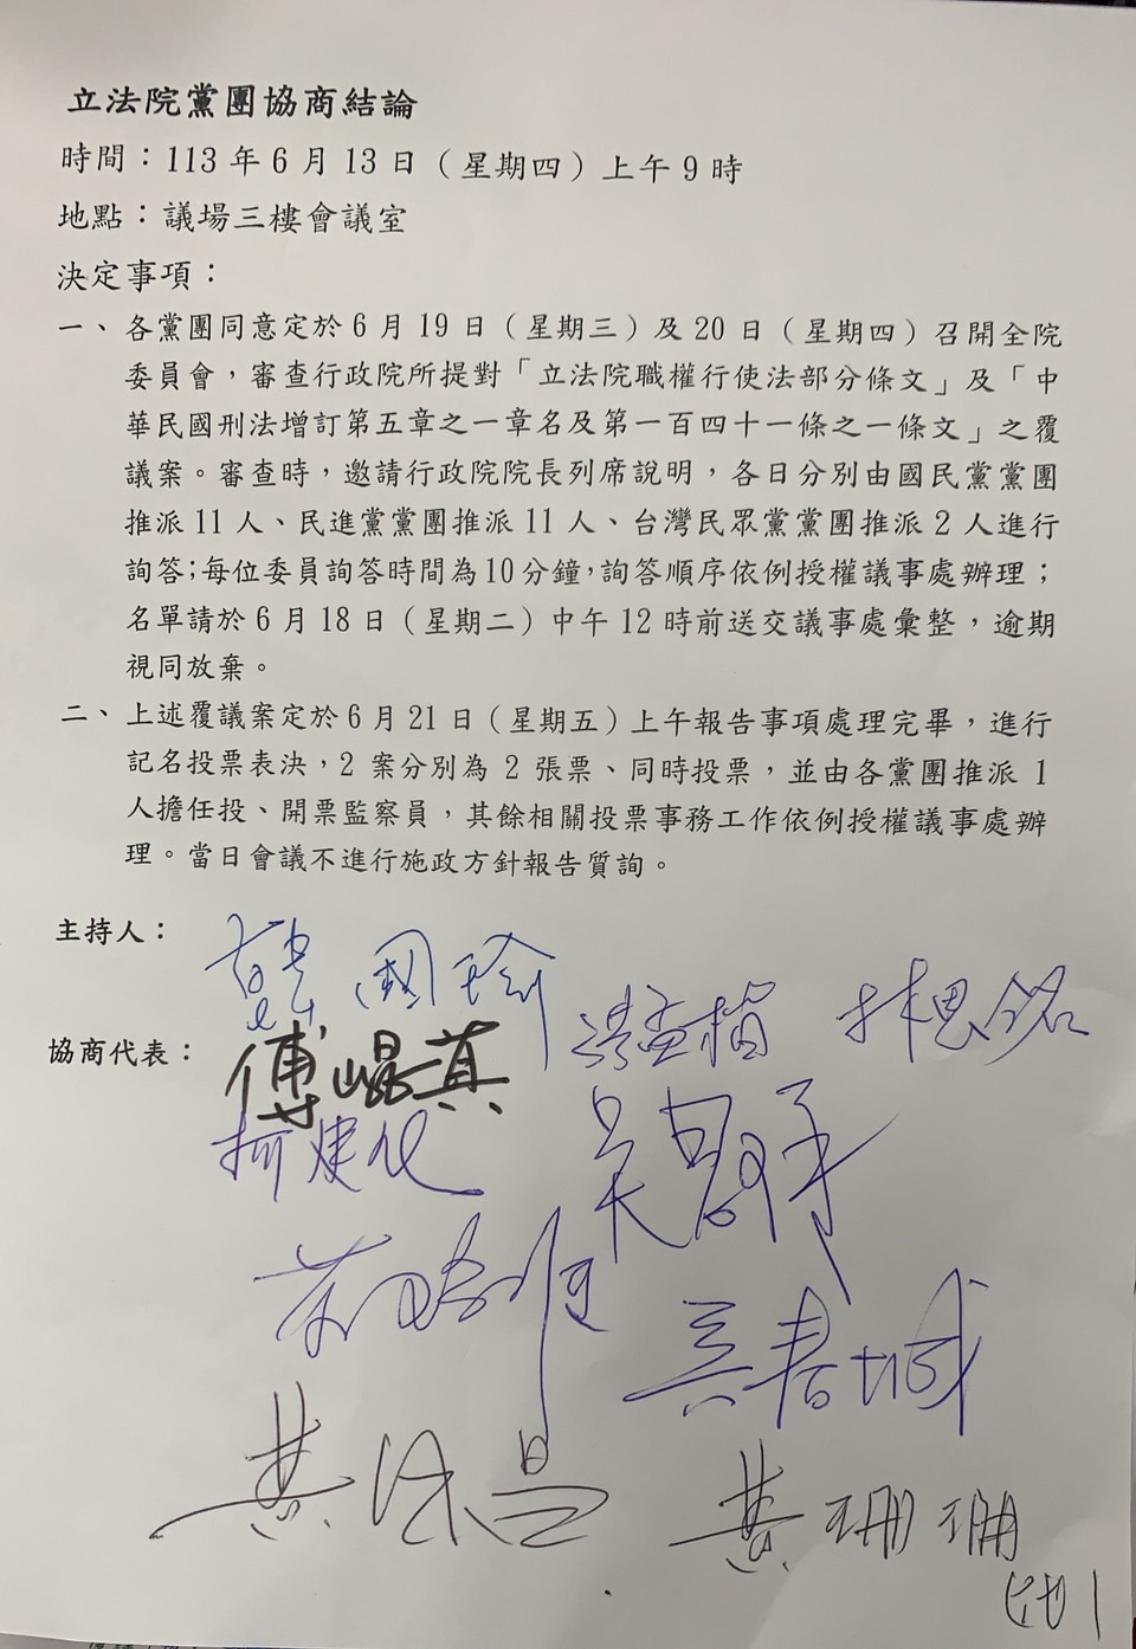 立法院黨團協商結論
時間：113年6月13日（星期四）上午9時
地點：議場三樓會議室
決定事項：
一、各黨團同意定於6月19日（星期三）及20日（星期四）召開全院
委員會，審查行政院所提對「立法院職權行使法部分條文」及「中
華民國刑法增訂第五章之一章名及第一百四十一條之一條文」之覆
議案。審查時，邀請行政院院長列席說明，各日分別由國民黨黨團
推派11人、民進黨黨團推派11人、台灣民眾黨黨團推派2人進行
詢答；每位委員詢答時間為10分鐘，詢答順序依例授權議事處辦理；
名單請於6月18日（星期二）中午12時前送交議事處彙整，逾期
視同放棄。
二、上述覆議案定於6月21日（星期五）上午報告事項處理完畢，進行
記名投票表決，2案分別為2張票、同時投票，並由各黨團推派1
人擔任投、開票監察員，其餘相關投票事務工作依例授權議事處辦
理。當日會議不進行施政方針報告質詢。
主持人：
韓國瑜
洪孟楷 林思銘
協商代表：
傅崐萁
柯建銘
吳思瑤
莊瑞雄
吳春城
黃國昌
黃珊珊